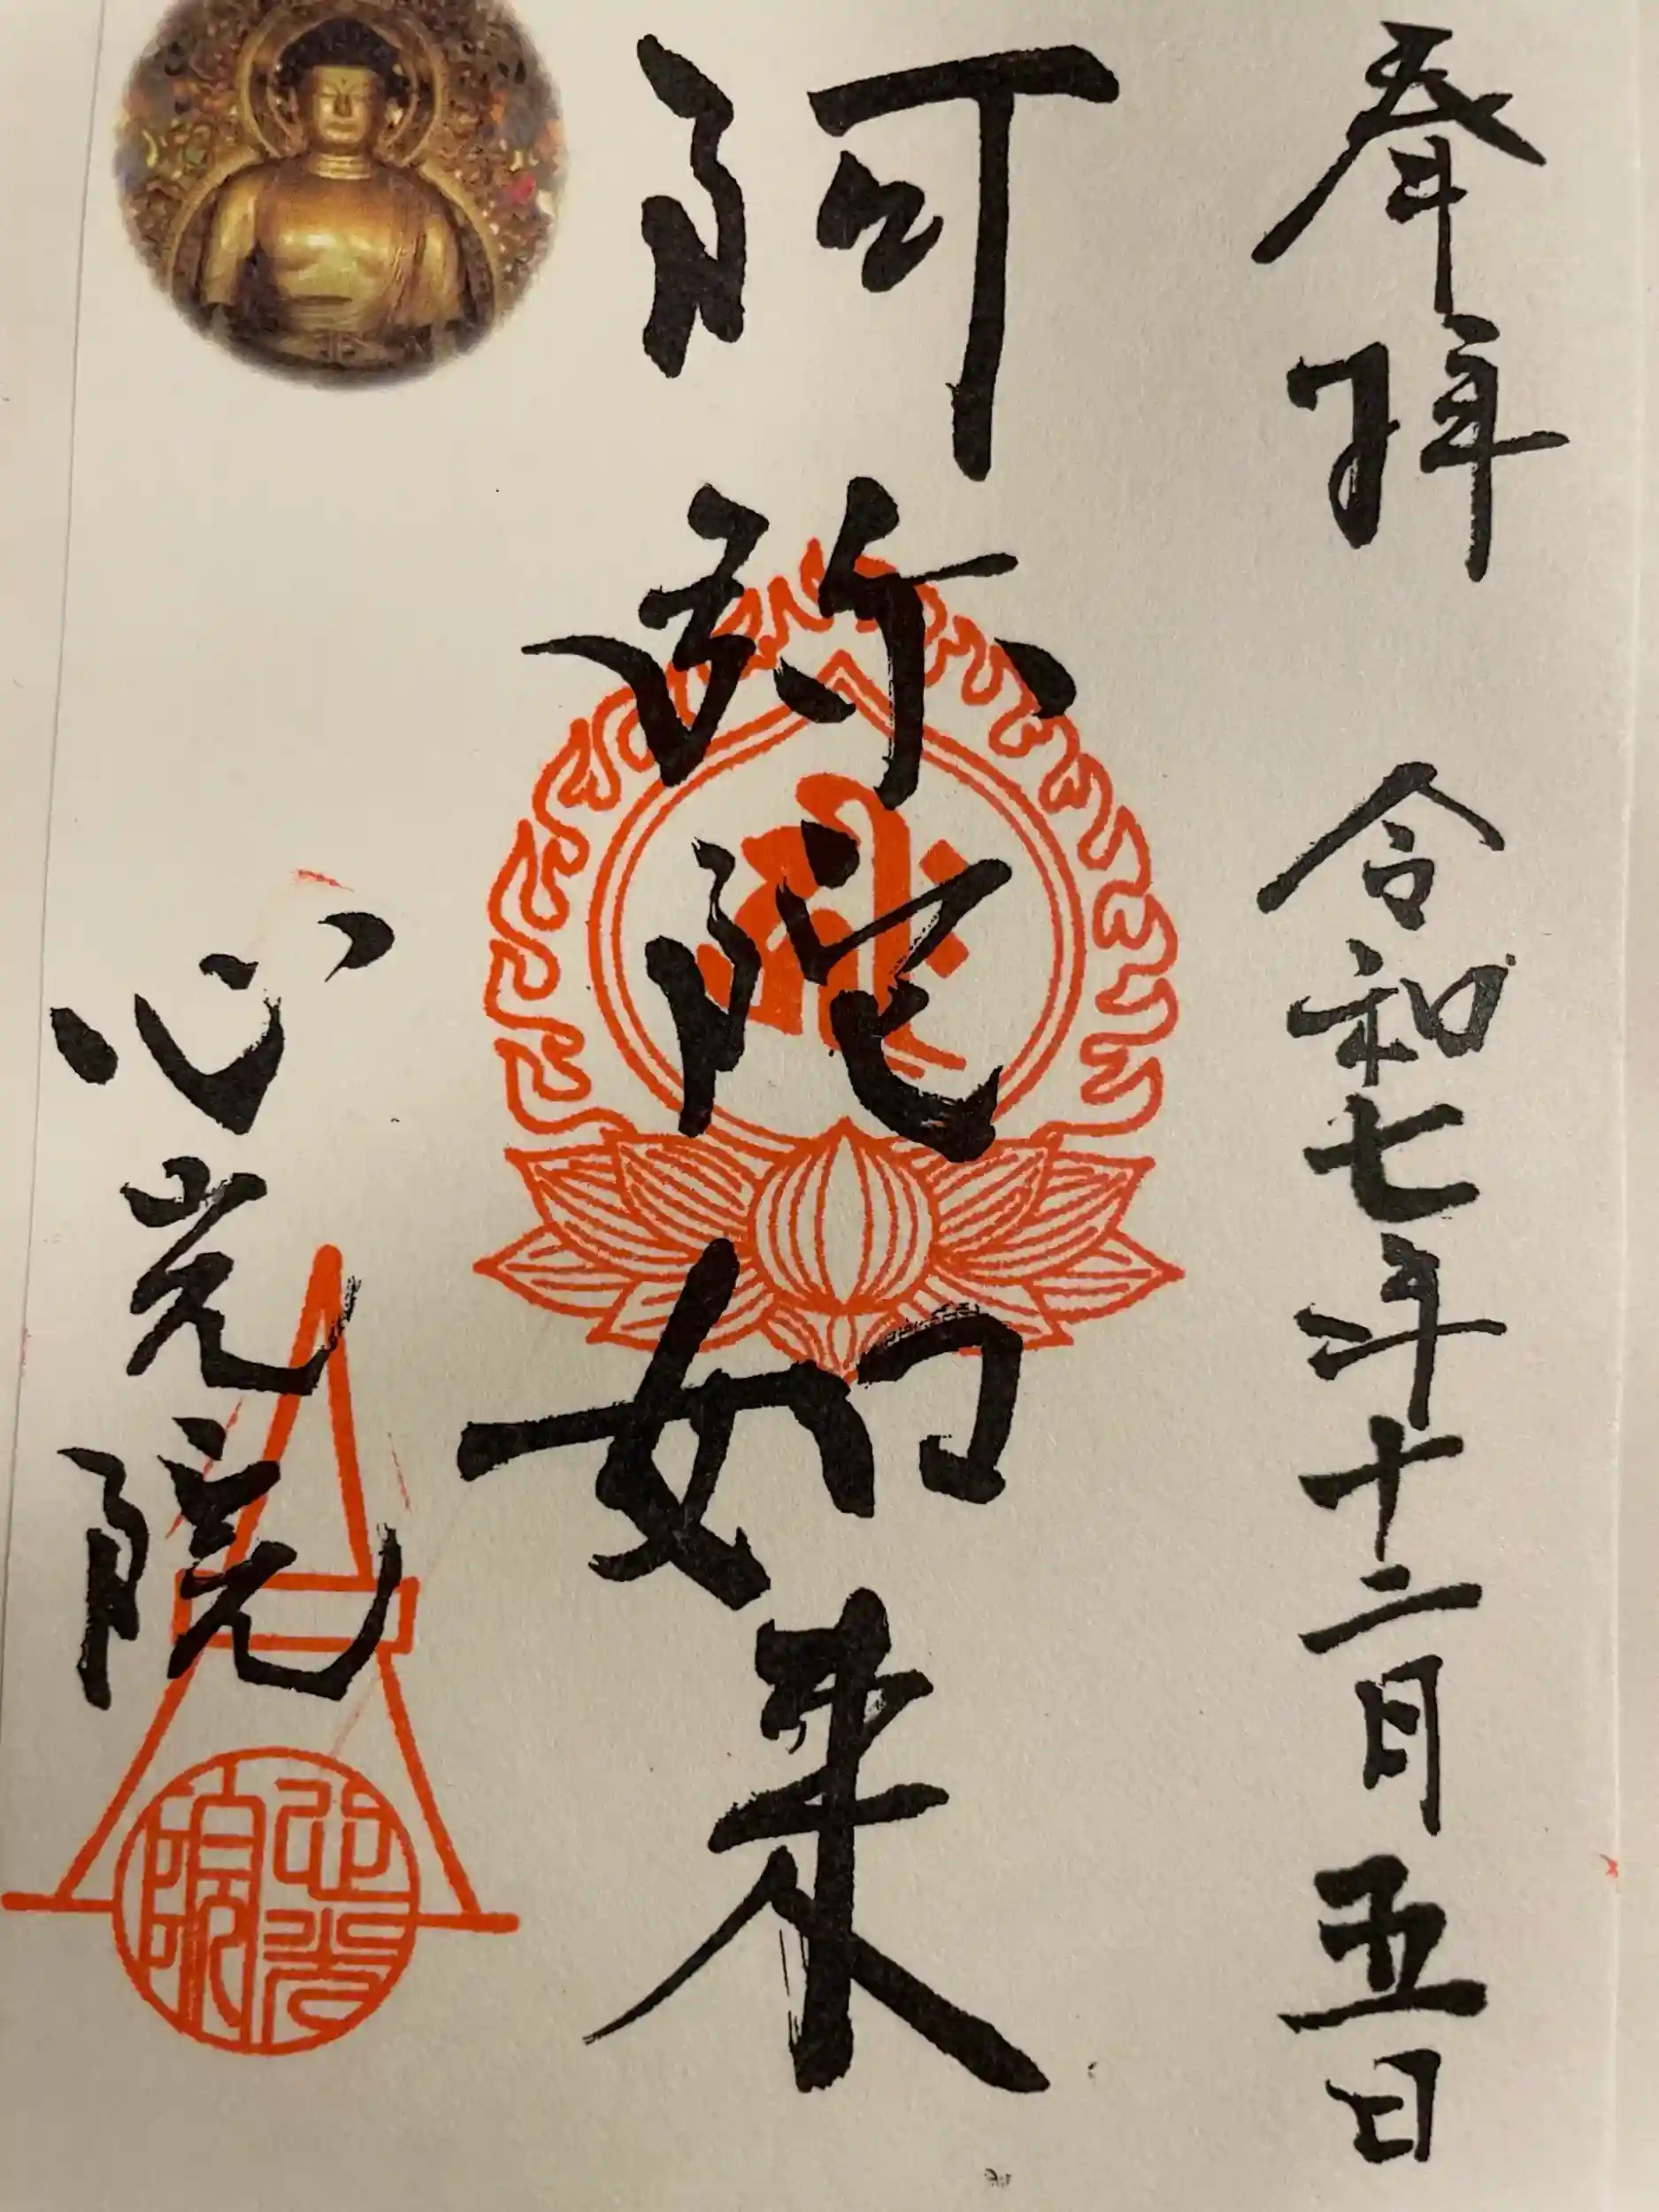 奉拝 令和七年十二月五日
阿弥陀如来
心光院
心光院